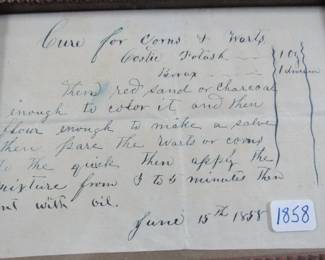 Cure for Corns & Warts
Costic Potash - - 1 Oz
Borax - - 1 dram
Then red sand or charcoal
enough to color it, and then
flour enough to make a salve
then pare the warts or corns
to the quick then apply the
mixture from 3 to 5 minutes then
with oil.
June 15th 1858
1858